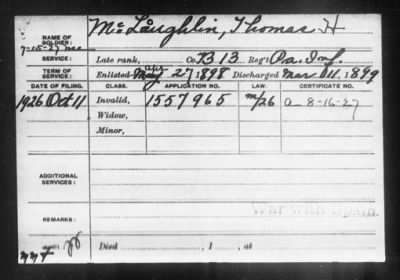 NAME OF SOLDIER: McLaughlin, Thomas H
7-15-27
SERVICE: Late rank, Co. B 13 Reg't Pa. Inf.
TERM OF SERVICE: Enlisted May 27 1898 Discharged Mar 11, 1899
apr
DATE OF FILING. CLASS. APPLICATION NO. LAW. CERTIFICATE NO.
1926 Oct 11 Invalid, 1557965 m/26 a-8-16-27
Widow,
Minor,
ADDITIONAL SERVICES:
REMARKS:
Died , 1 , at